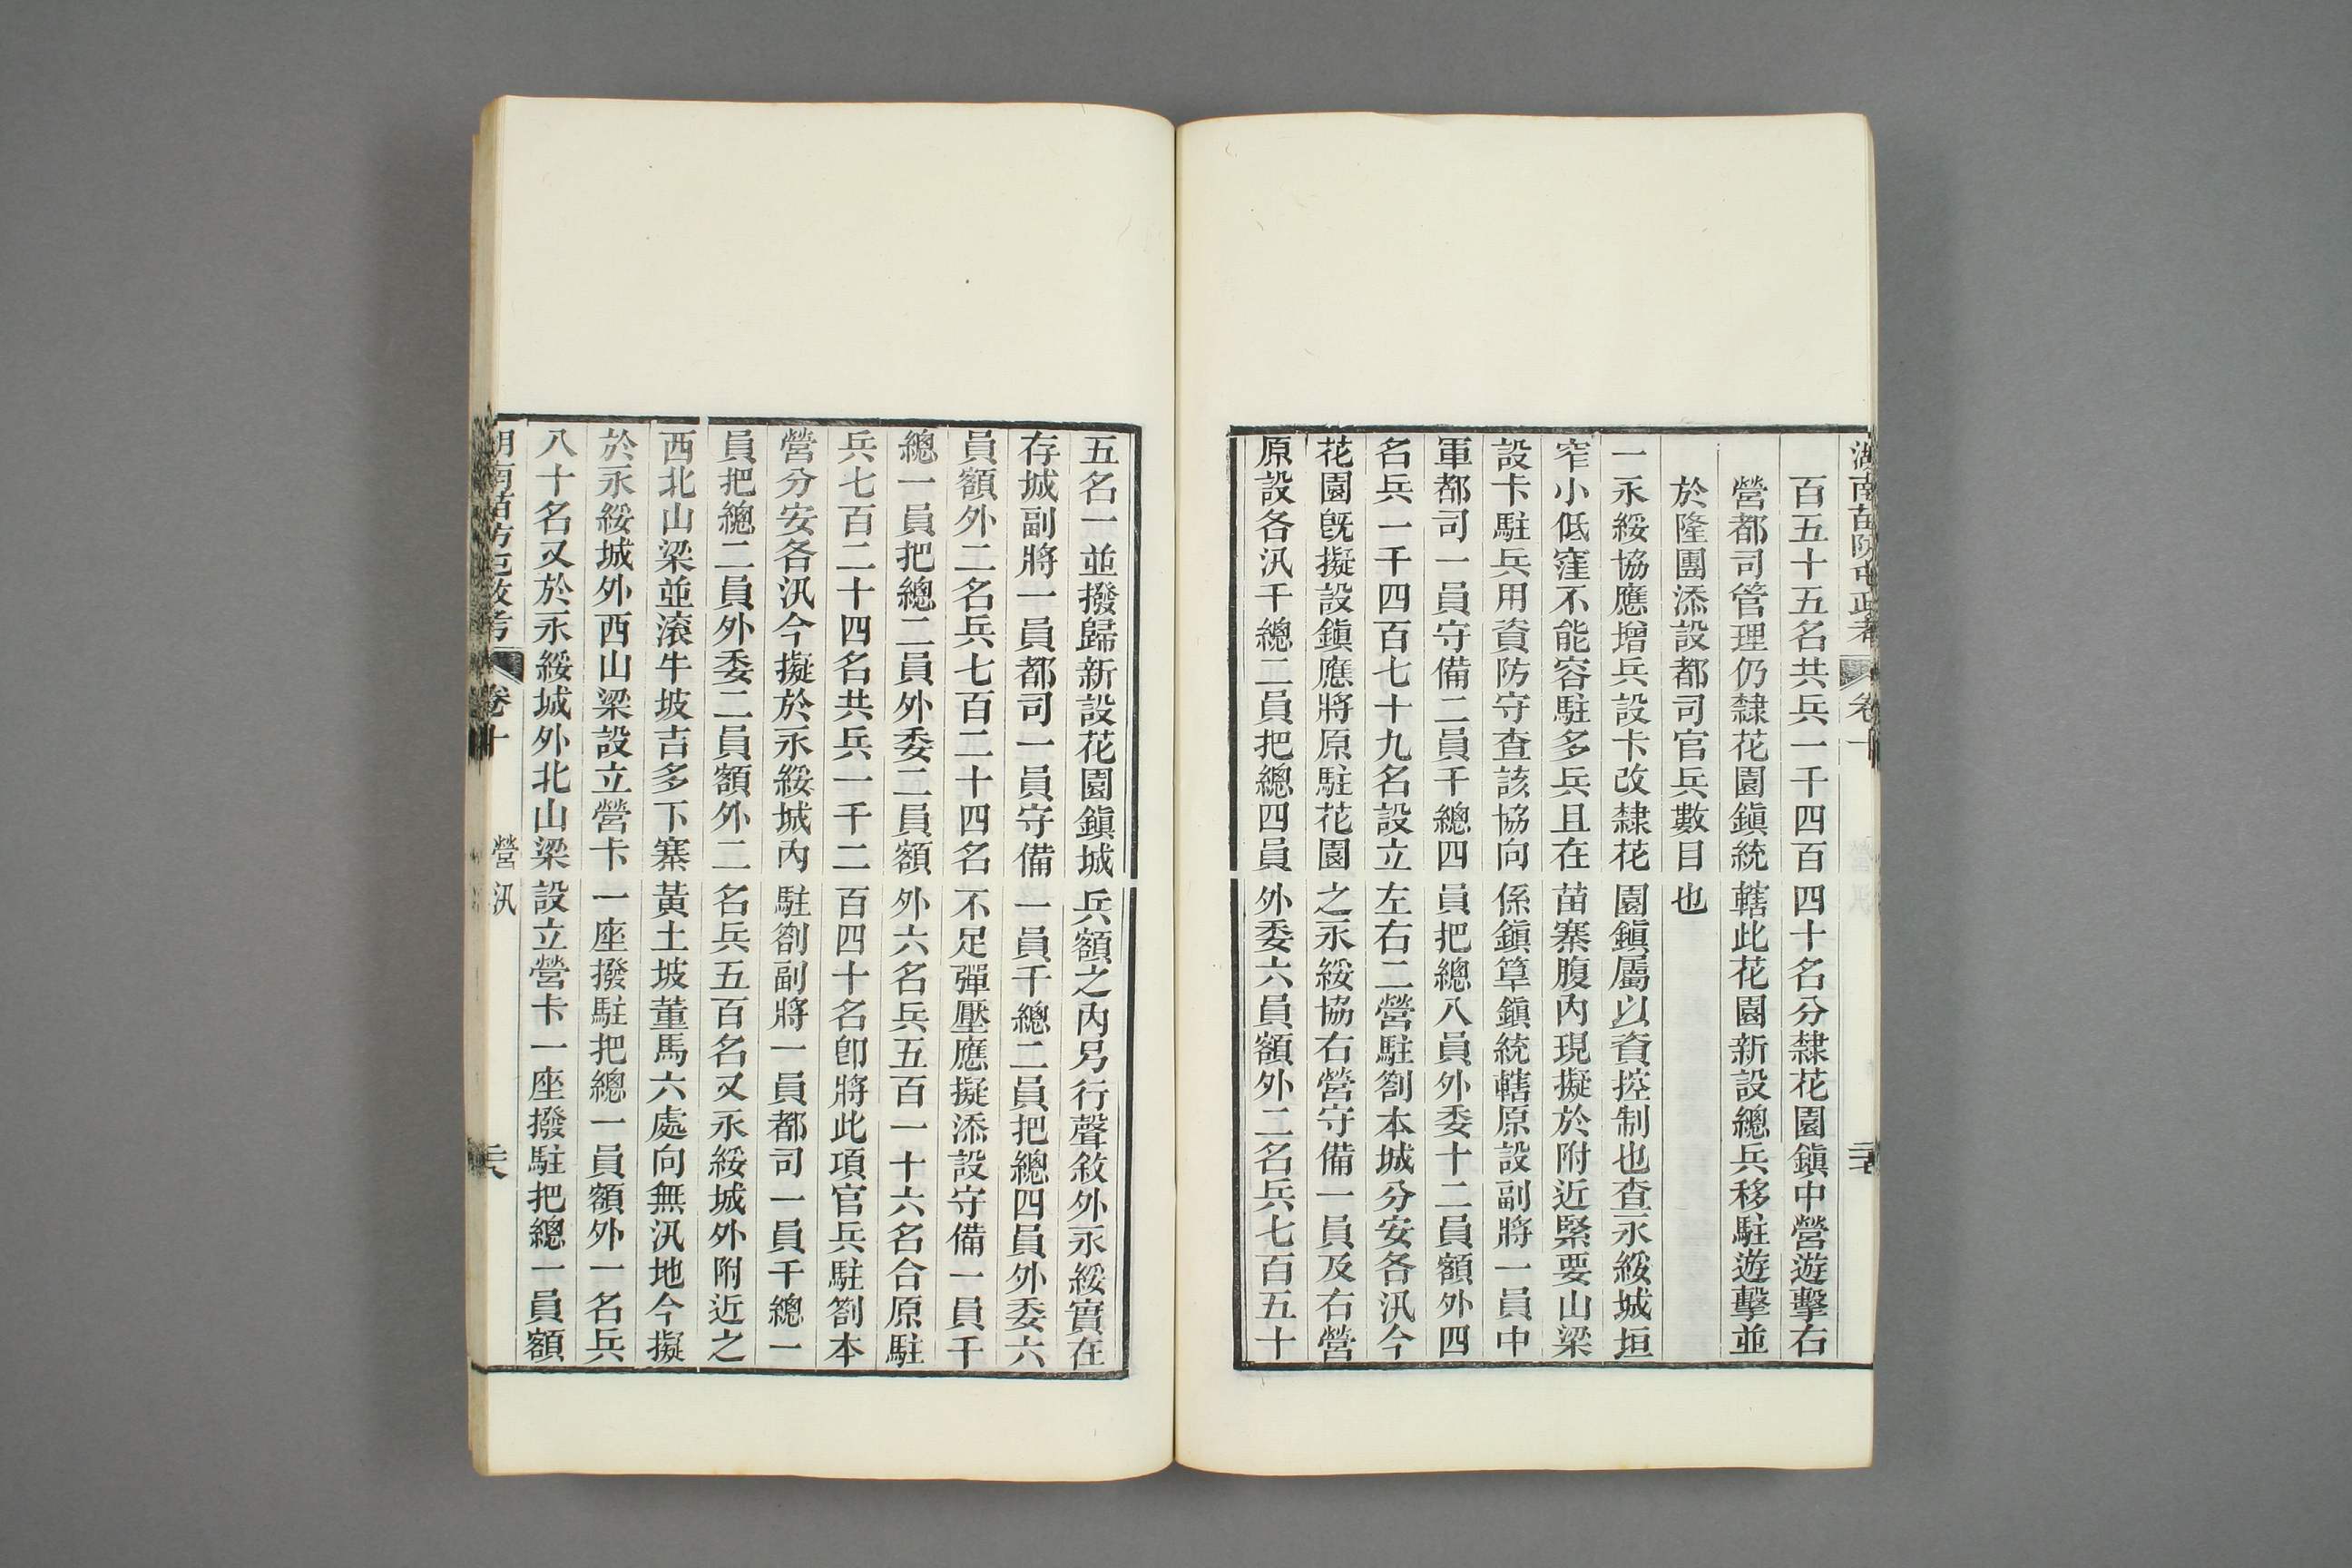 湖南苗防屯政考 卷十
百五十五名共兵一千四百四十名分隸花園鎭中營遊擊右
營都司管理仍隸花園鎭統轄此花園新設總兵移駐遊擊並
於隆團添設都司官兵數目也
一永綏協應增兵設卡改隸花園鎭屬以資控制也查永綏城垣
窄小低窪不能容駐多兵且在苗寨腹內現擬於附近緊要山梁
設卡駐兵用資防守查該協向係鎭筸鎭統轄原設副將一員中
軍都司一員守備二員千總四員把總八員外委十二員額外四
名兵一千四百七十九名設立左右二營駐劄本城分安各汛今
花園旣擬設鎭應將原駐花園之永綏協右營守備一員及右營
原設各汛千總二員把總四員外委六員額外二名兵七百五十
五名一並撥歸新設花園鎭城兵額之內另行聲敘外永綏實在
存城副將一員都司一員守備一員千總二員把總四員外委六
員額外二名兵七百二十四名不足彈壓應擬添設守備一員千
總一員把總二員外委二員額外六名兵五百一十六名合原駐
兵七百二十四名共兵一千二百四十名卽將此項官兵駐劄本
營分安各汛今擬於永綏城內駐劄副將一員都司一員千總一
員把總二員外委二員額外二名兵五百名又永綏城外附近之
西北山梁並滚牛坡吉多下寨黃土坡董馬六處向無汛地今擬
於永綏城外西山梁設立營卡一座撥駐把總一員額外一名兵
八十名又於永綏城外北山梁設立營卡一座撥駐把總一員額
湖南苗防屯政考 卷十 營汛